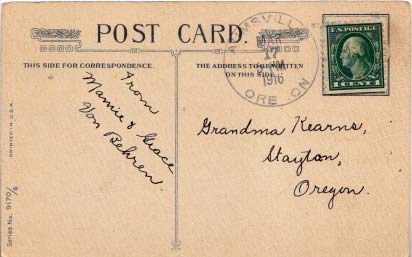 POST CARD.
THIS SIDE FOR CORRESPONDENCE.
THE ADDRESS TO BE WRITTEN
ON THIS SIDE
From
Mamie & Grace
Von Behren.
MSVILL
MAR
17
M
1916
ORE ON
U.S. POSTAGE
1 CENT 1
Grandma Kearns,
Stayton,
Oregon.
PRINTED IN U.S.A.
Series No. 9170/6